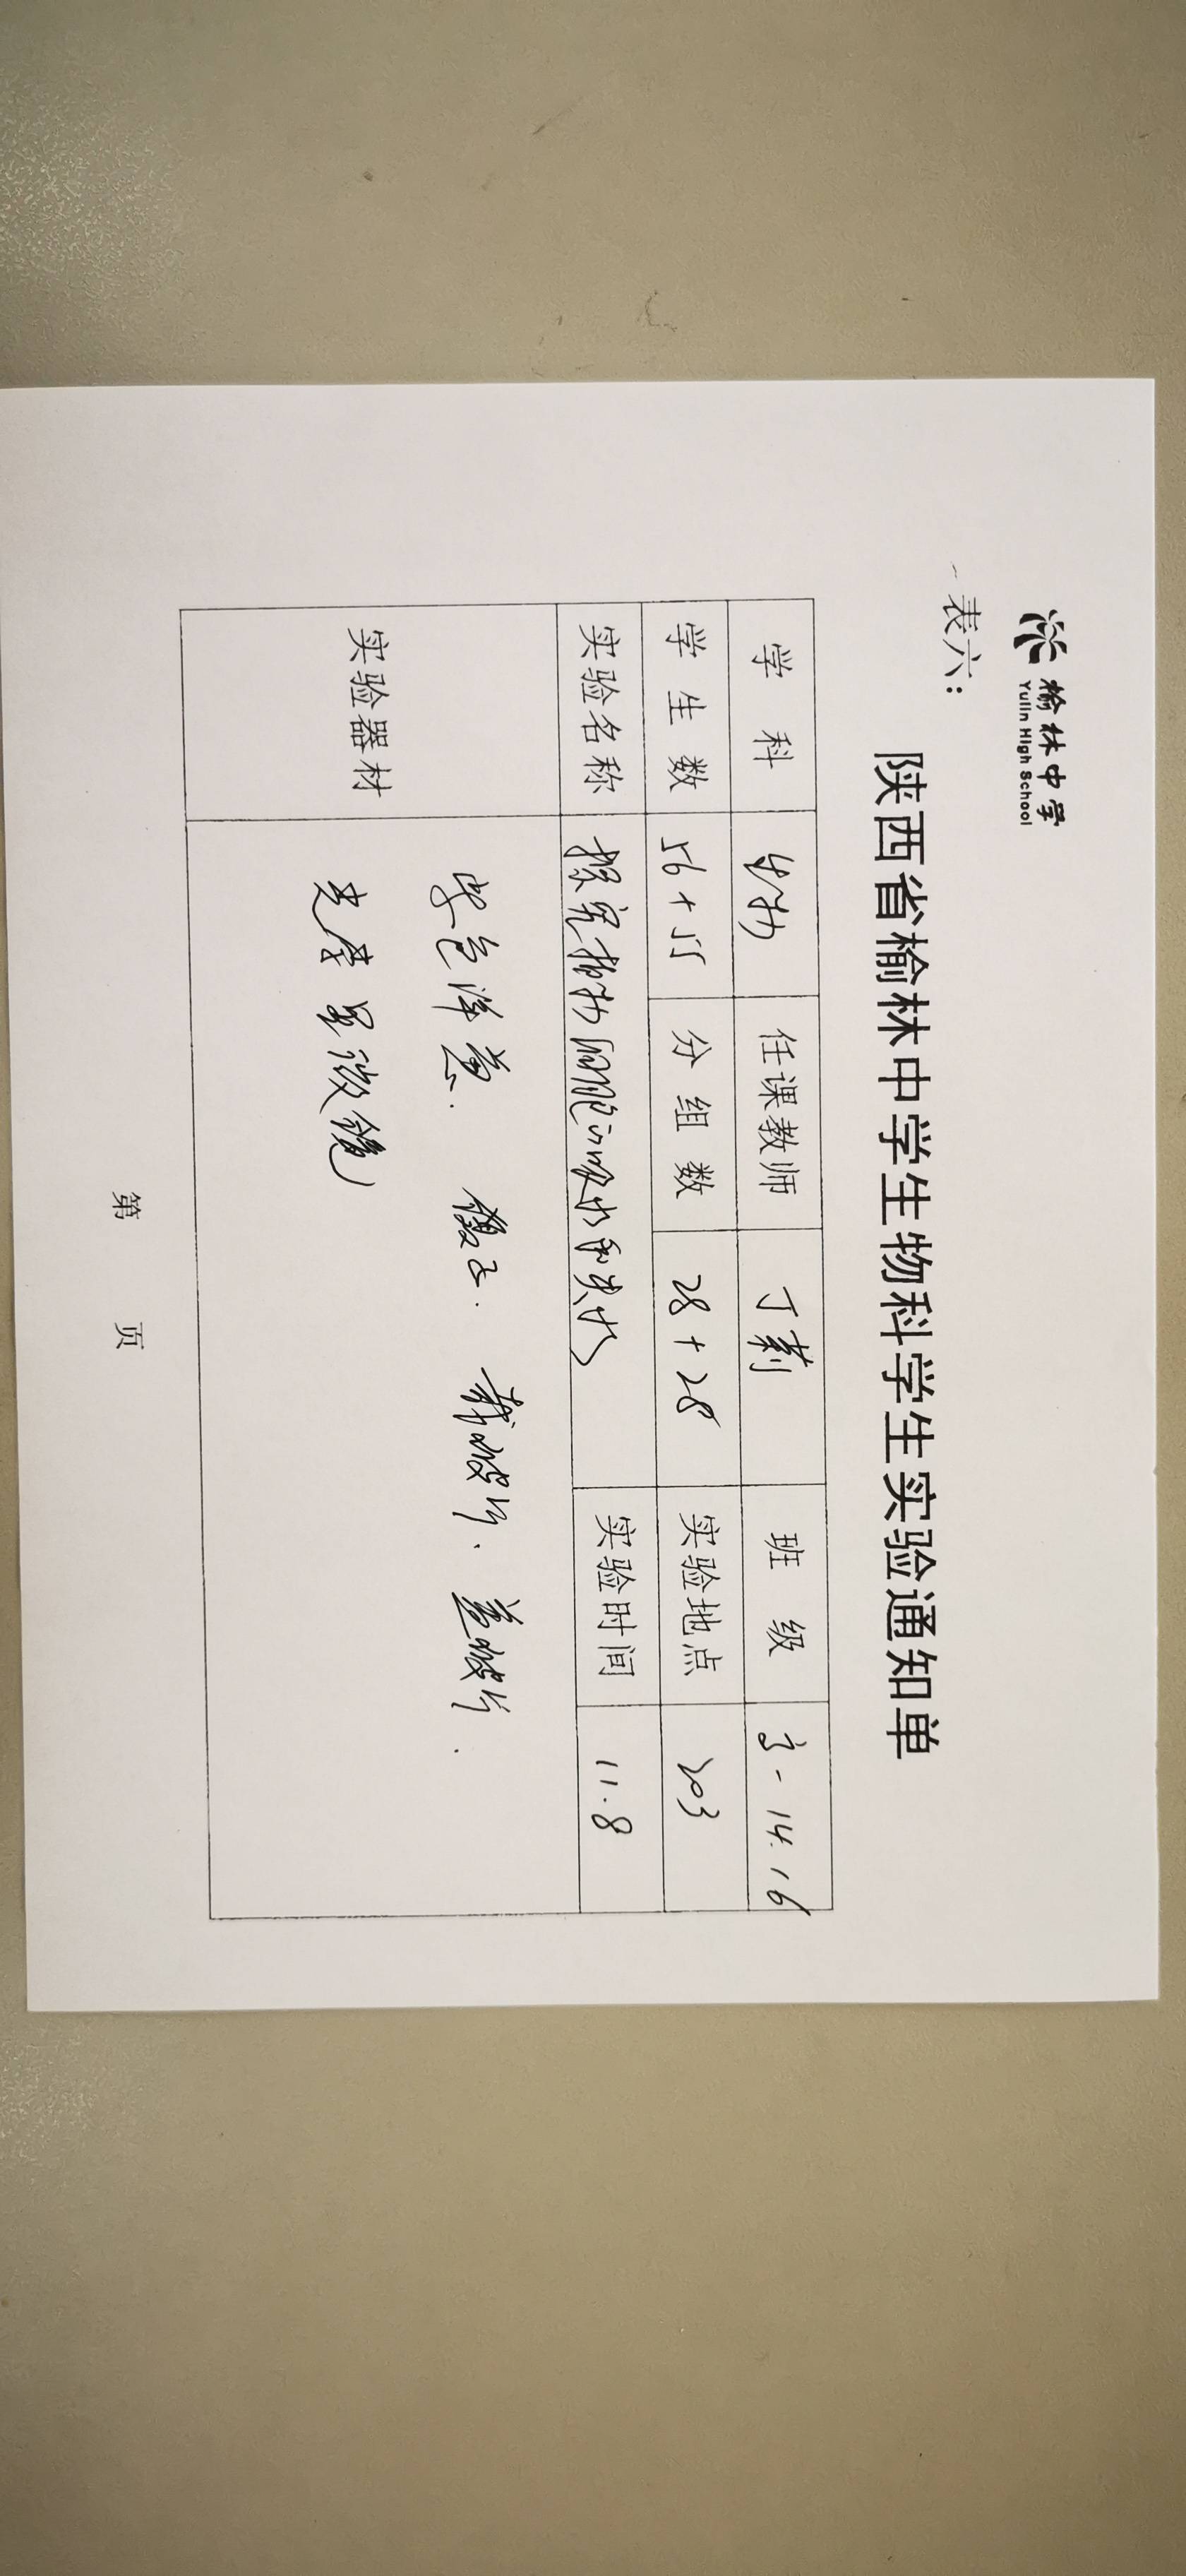 榆林中学
Yulin High School
表六：
陕西省榆林中学生物科学生实验通知单
学 科 生物 任课教师 丁莉 班 级 高一 14.16
学 生 数 56+55 分 组 数 28+28 实验地点 203
实验名称 探究植物细胞的吸水和失水 实验时间 11.8
实验器材
紫色洋葱. 镊子. 载玻片. 盖玻片.
光学显微镜
第 页